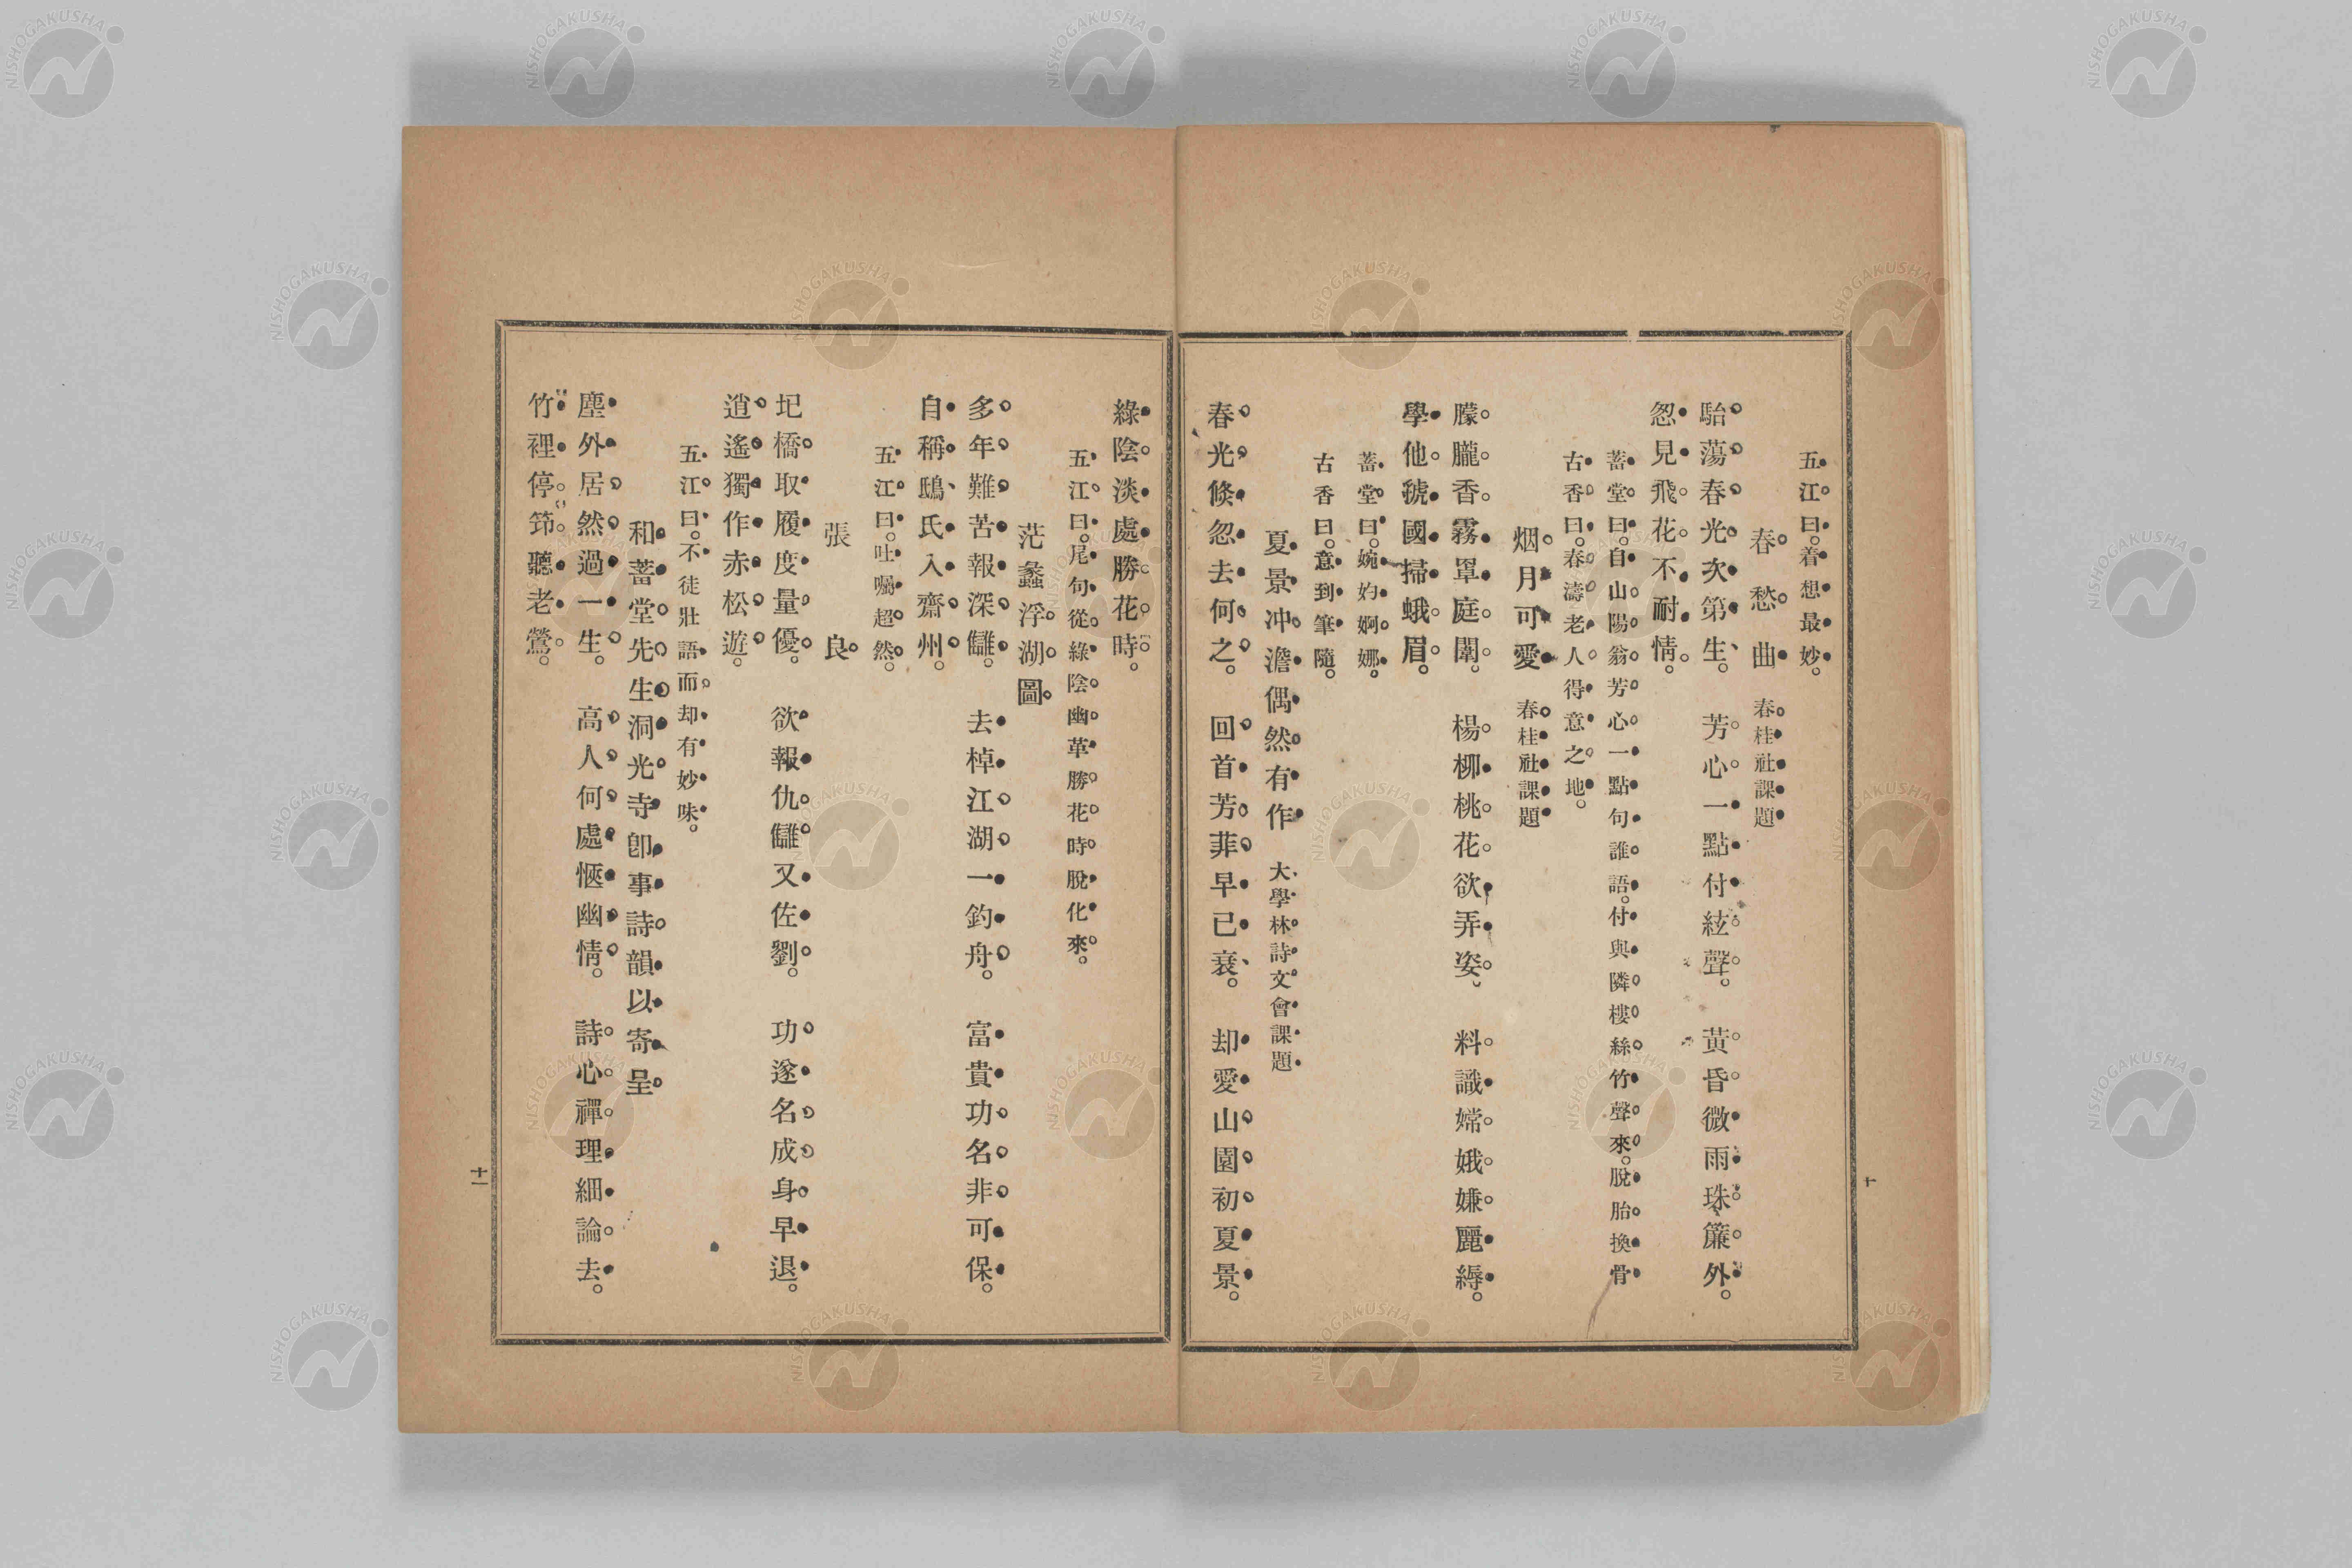 五江曰。着想最妙。
春愁曲 春桂社課題
駘蕩春光次第生。芳心一點付絃聲。黃昏微雨珠簾外。
忽見飛花不耐情。
蓄堂曰。自山陽翁芳心一點句誰語。付與隣樓絲竹聲來。脫胎換骨
古香曰。春濤老人得意之地。
烟月可愛 春桂社課題
朦朧香霧罩庭闈。楊柳桃花欲弄姿。料識嫦娥嫌麗縟。
學他虢國掃蛾眉。
蓄堂曰。婉妁婀娜。
古香曰。意到筆隨。
夏景冲澹偶然有作 大學林詩文會課題
春光倏忽去何之。回首芳菲早已衰。却愛山園初夏景。
十
綠陰淡處勝花時。
五江曰。尾句從綠陰幽草勝花時脫化來。
茫蠡浮湖圖
多年難苦報深讎。去棹江湖一釣舟。富貴功名非可保。
自稱鴟氏入齋州。
五江曰。吐囑超然。
張良
圯橋取履度量優。欲報仇讎又佐劉。功遂名成身早退。
逍遙獨作赤松遊。
五江曰。不徒壯語而。却有妙味。
和蓄堂先生洞光寺卽事詩韻以寄呈
塵外居然過一生。高人何處愜幽情。詩心禪理細論去。
竹裡停筇聽老鶯。
十一
NISHOGAKUSHA